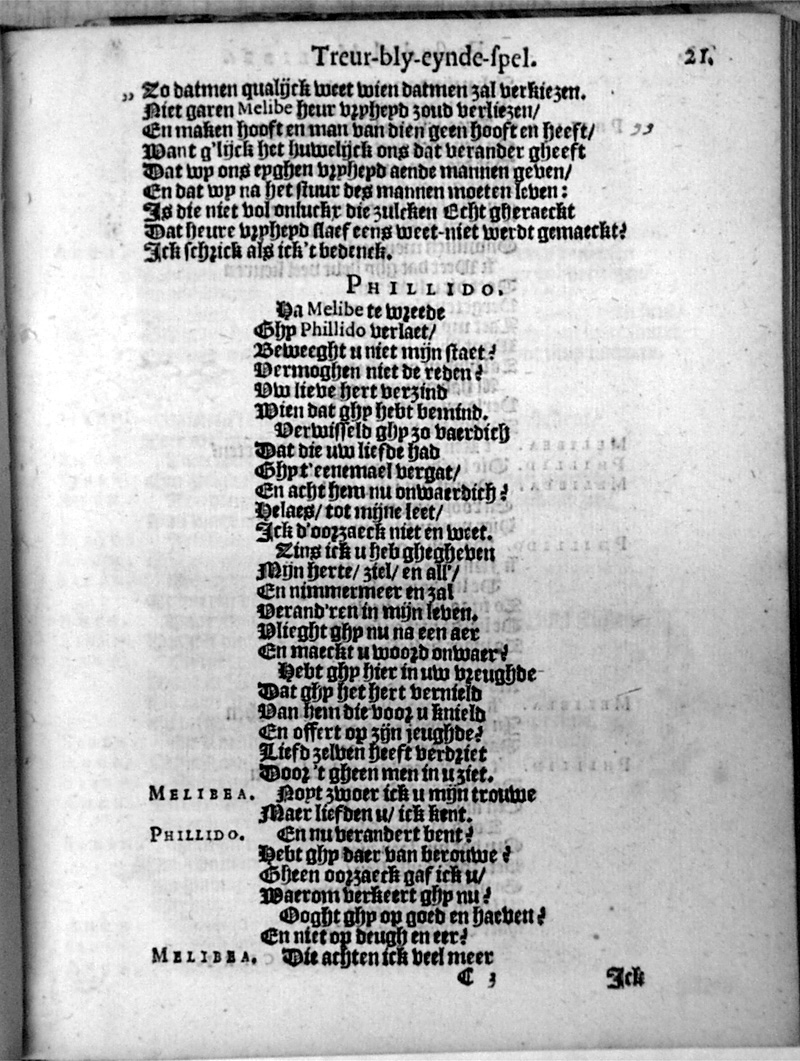 Treur-bly-eynde-spel. 21.
„ Zo datmen qualijck weet wien datmen zal verkiezen.
Niet garen Melibe heur vryheyd zoud verliezen/
En maken hooft en man van dien geen hooft en heeft/ ”
Want g'lijck het huwelijck ons dat verander gheeft
Dat wy ons eyghen vryheyd aende mannen geven/
En dat wy na het stuur des mannen moeten leven:
Is die niet vol onluckx die zulcken Echt gheraeckt
Dat heure vryheyd slaef eens weet-niet werdt gemaeckt?
Ick schrick als ick 't bedenck.
PHILLIDO.
Ha Melibe te wreede
Ghy Phillido verlaet/
Beweeght u niet mijn staet?
Vermoghen niet de reden?
Uw lieve hert verzind
Wien dat ghy hebt bemind.
Verwisseld ghy zo vaerdich
Dat die uw liefde had
Ghy t'eenemael vergat/
En acht hem nu onwaerdich?
Helaes/ tot mijne leet/
Ick d'oorzaeck niet en weet.
Zins ick u heb ghegheven
Mijn herte/ ziel/ en all'/
En nimmermeer en zal
Verand'ren in mijn leven.
Vlieght ghy nu na een aer
En maeckt u woord onwaer?
Hebt ghy hier in uw vreughde
Dat ghy het hert vernield
Van hem die voor u knield
En offert op zijn jeughde?
Liefd zelven heeft verdriet
Door 't gheen men in u ziet.
MELIBEA. Noyt zwoer ick u mijn trouwe
Maer liefden u/ ick kent.
PHILLIDO. En nu verandert bent?
Hebt ghy daer van berouwe?
Gheen oorzaeck gaf ick u/
Waerom verkeert ghy nu?
Ooght ghy op goed en haeven?
En niet op deugh en eer?
MELIBEA. Die achten ick veel meer
C 3 Ick